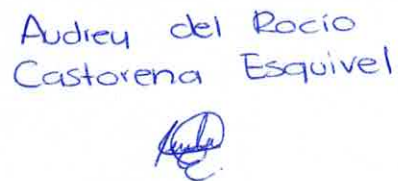 Audrey del Rocío
Castorena Esquivel